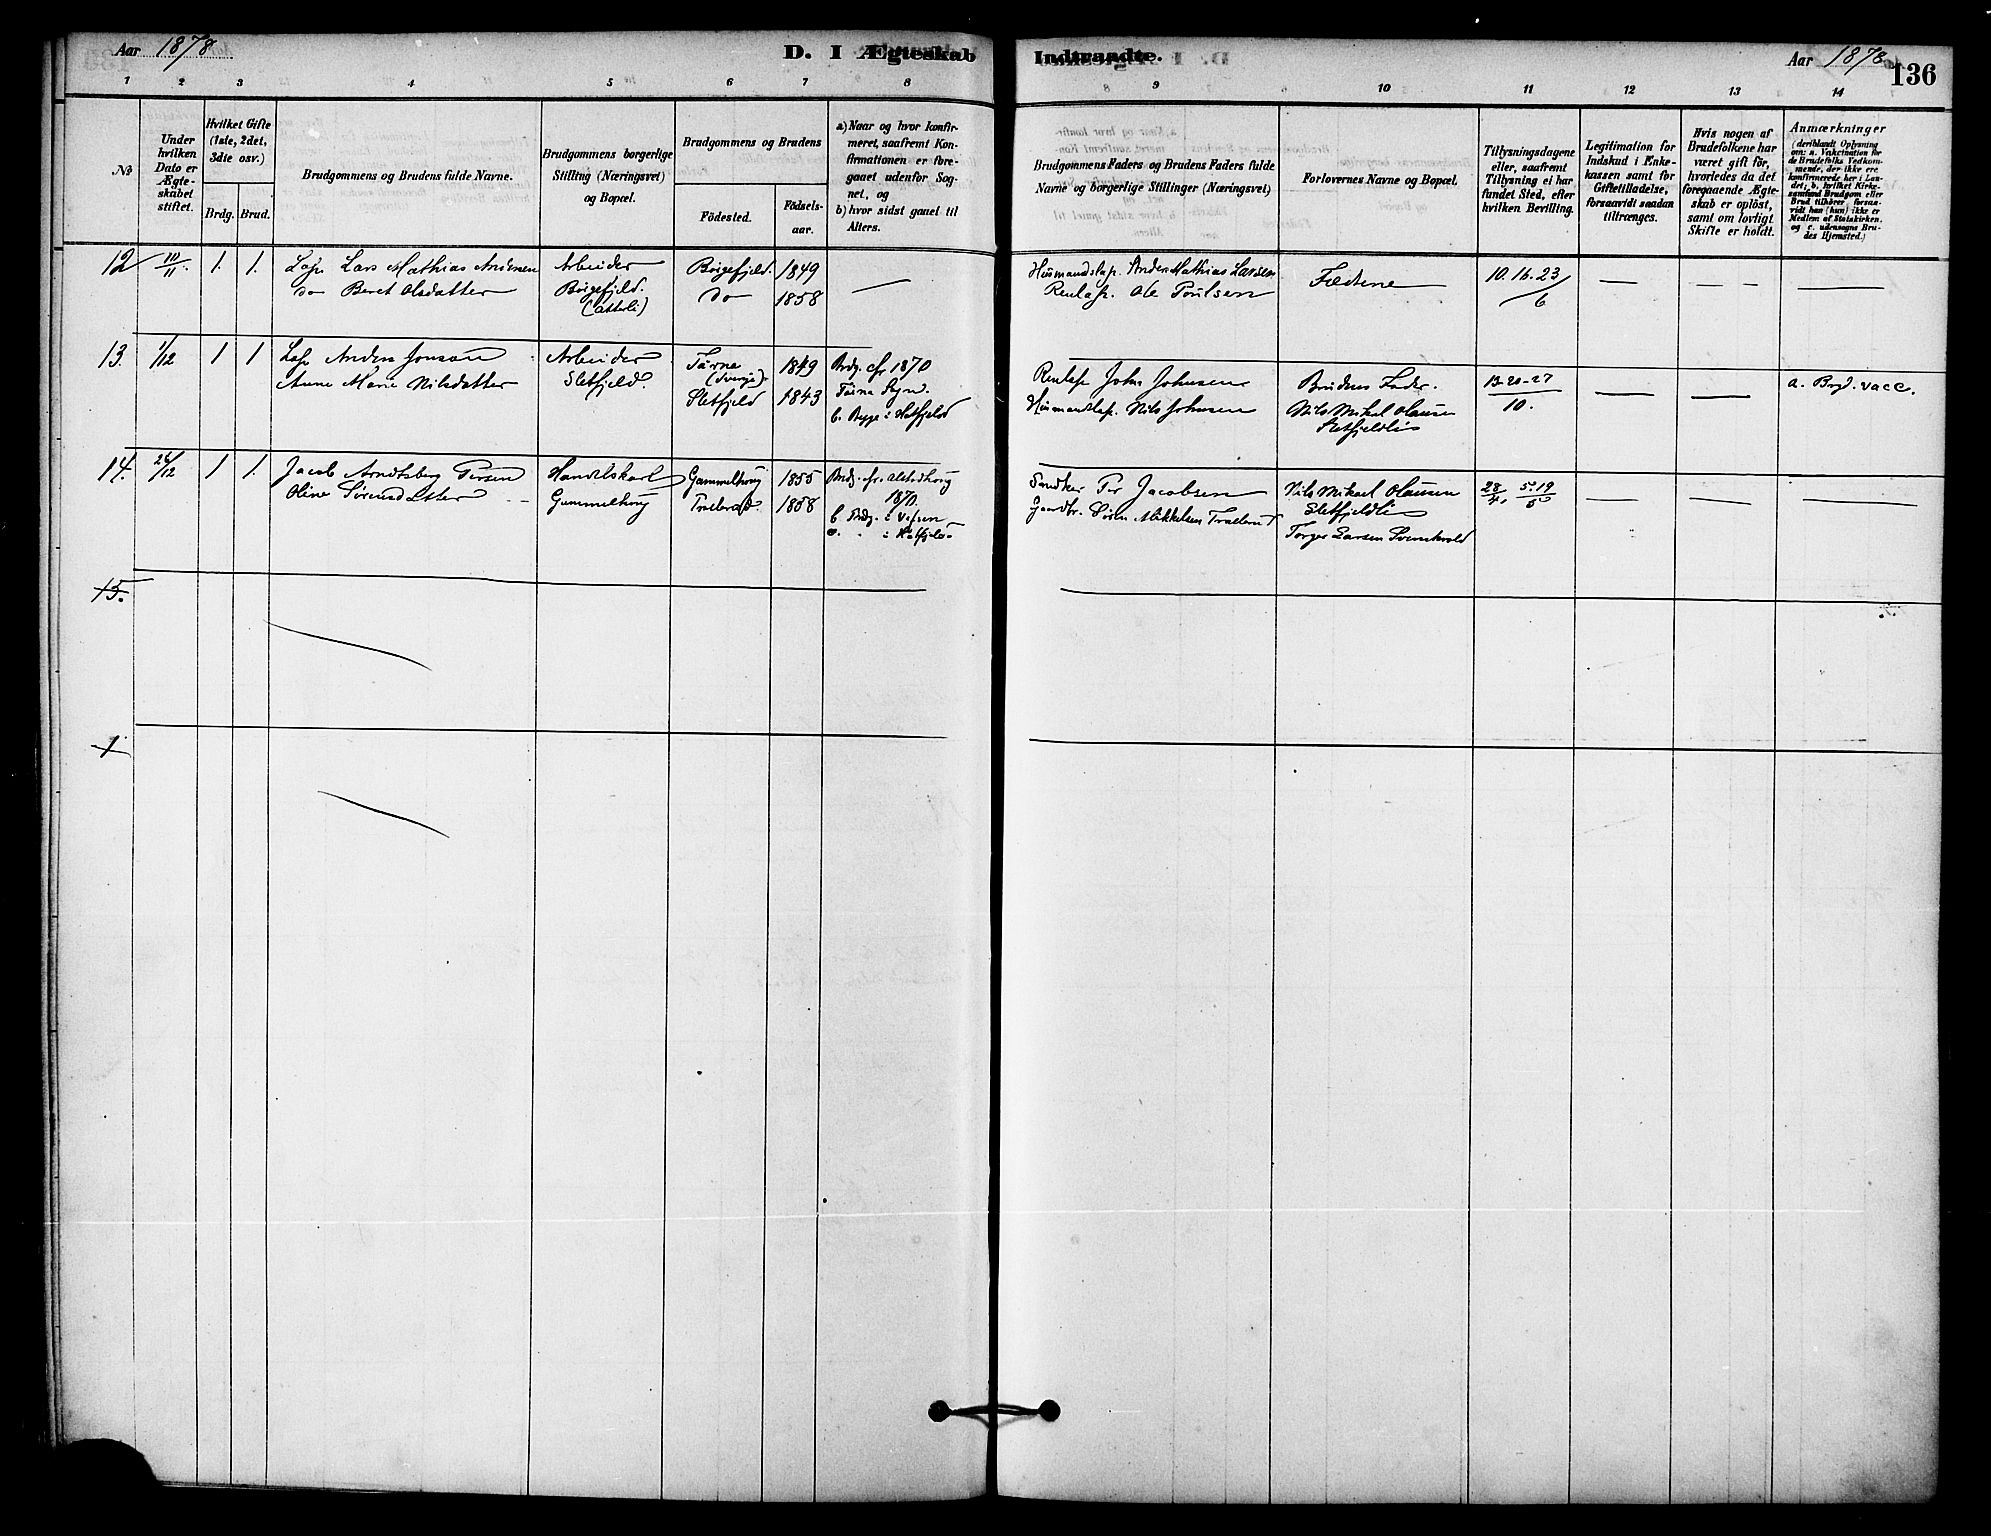 Aar 1878
D. I Ægteskab Indtraadte.
Aar 1878
136
1 2 3 4 5 6 7 8 9 10 11 12 13 14
No
Under hvilken Dato er Ægteskabet stiftet.
Hvilket Gifte (1ste, 2det, 3die osv.)
Brdg. Brud.
Brudgommens og Brudens fulde Navne.
Brudgommens borgerlige Stilling (Næringsvei) og Bopæl.
Brudgommens og Brudens
Födested.
Födselsaar.
a) Naar og hvor konfirmeret, saafremt Konfirmationen er foregaaet udenfor Sognet, og
b) hvor sidst gaaet til Alters.
Brudgommens Faders og Brudens Faders fulde Navne og borgerlige Stillinger (Næringsvei)
Forlovernes Navne og Bopæl.
Tillysningsdagene eller, saafremt Tillysning ei har fundet Sted, efter hvilken Bevilling.
Legitimation for Indskud i Enkekassen samt for Giftetilladelse, forsaavidt saadan tiltrænges.
Hvis nogen af Brudefolkene har været gift för, hvorledes da det foregaaende Ægteskab er oplöst, samt om lovligt Skifte er holdt.
Anmærkninger (deriblandt Oplysning om: a. Vakcination for de Brudefolks Vedkommende, der ikke ere konfirmerede her i Landet; b. hvilket Kirkesamfund Brudgom eller Brud tilhörer, forsaavidt han (hun) ikke er Medlem af Statskirken. og c. udensogns Brudes Hjemsted.)
12 10/11. 1. 1. Lap Lars Mathias Andersen Arbeider Börgefjeld. 1849 — Husmandslap. Anders Mathias Larsen Fædrene 10. 16. 23/6 — — — —
do Beret Olsdatter Börgefjeld. do 1858 Renlap. Ole Poulsen
13. 1/12 1 1 Lap Anders Jonsen Arbeider Tärna (Sverige). 1849 Brdg. cfr 1870 Renlap John Johnsen Brudens Fader. 13-20-27/10. — — a. Brgd. vacc.
Anne Marie Nilsdatter Sletfjeld. Sletfjeld 1843 Tärna Sogn. Husmandslap. Nils Johnsen Nils Mikal Olausen
b. Begge i Hatfjeld Sletfjeldli
14. 26/12 1 1. Jacob Arndtsberg Persen Handelskarl 1855 Per Jacobsen Nils Mikael Olausen 28/4. 5. 19/5 — — —
Oline Sörensdatter 1858 1870. Gaardbr. Sören Mikkelsen Sletfjeldli
b Brdg. i Vefsen Torger Larsen
15.
1